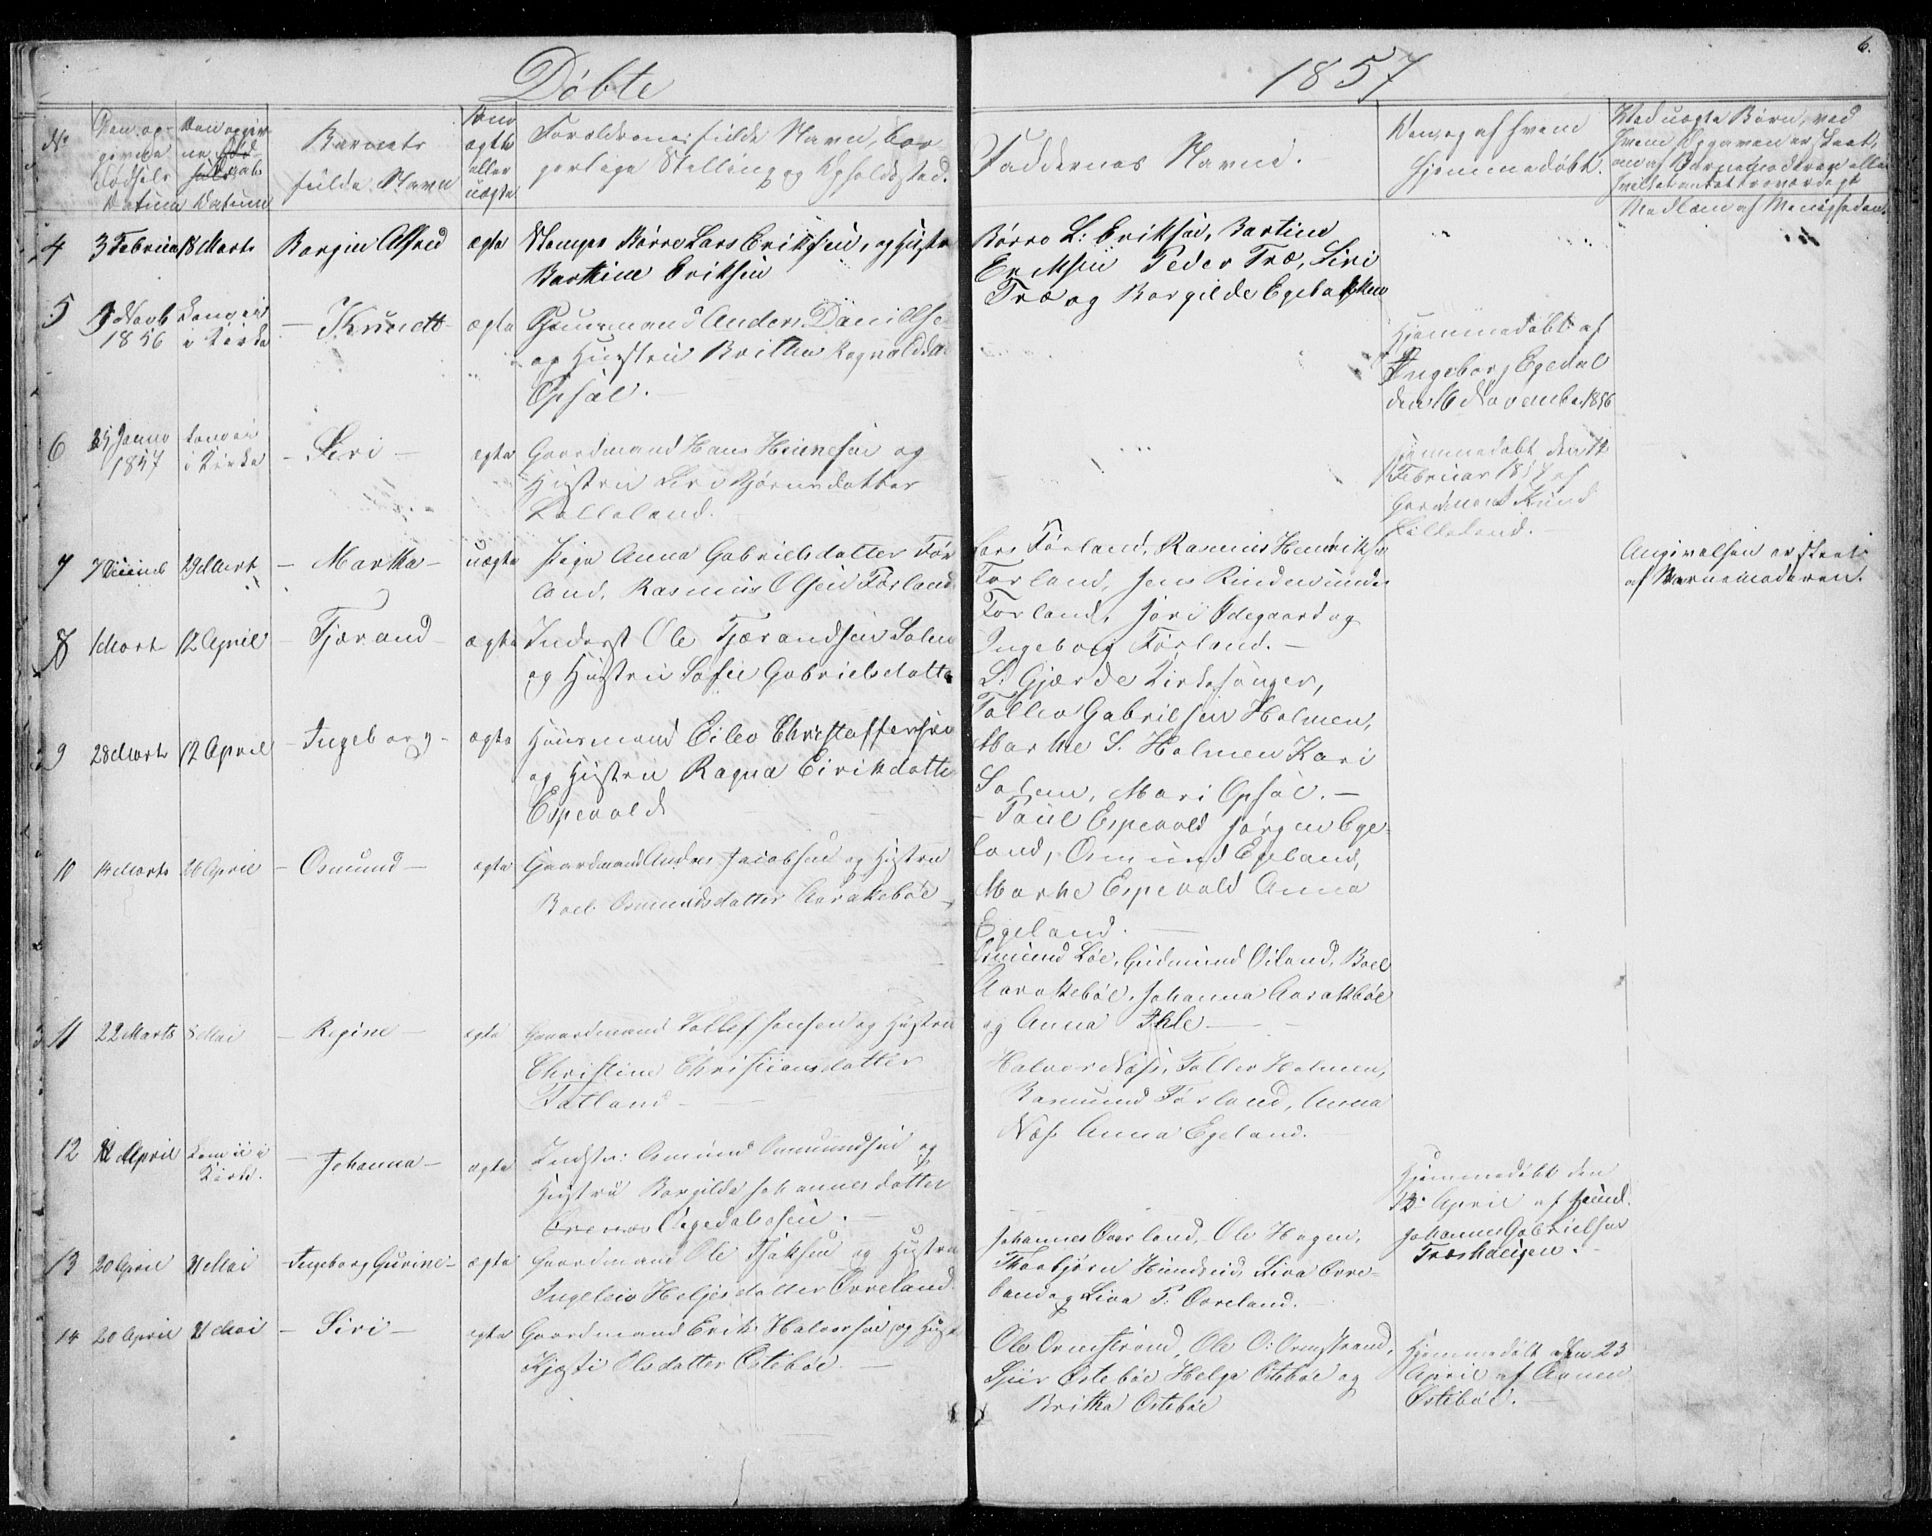 Døbte
1857
6.
No
Den op-
givne
Fødsels
Datum
Daabs
Datum
Barnets
fulde Navn
ægte
eller
uægte
Forældrenes fulde Navn, bor
gerlige Stilling og Opholdssted.
Faddernes Navne.
Hvor og af hvem
hjemmedøbt.
Ved uægte Børn, ved
hvem Opgaven er skeet,
om af Barnemoderen eller
Medlem af Menigheden.
4 3 Februar 8 Marts Bergin Alfred ægte Børre Lars Eriksen, og Hustru
Bertine Eriksen
Børre L: Eriksen, Bertine
Eriksen Peder Træ, Siri
Træ og Borgilde Egebakken
5 9 Novb 1856 i Kirke – Knudt – ægte Huusmand Anders Danielse
og Hustru Britha Rognaldsda
Opsal. –
Hjemmedøbt af
Ingeborg Egedal
den 16 November 1856
6 Janua 1857 i Kirke – Siri – ægte Gaardmand Hans Heinesen og
Hustru Siri Bjørnsdatter
Lølleland.
Hjemmedøbt den
Februar 1857 af
Gardmand Knud
Lilleland.
7 7 Decemb 29 Mart – Martha – uægte Pige Anna Gabrielsdatter Før
land, Rasmus Olsen Førland
Lars Førland, Rasmus Hendrikse
Førland, Jens
Førland, Jori Ødegaard og
Ingeborg Førland. –
Angivelsen er skeet
af Barnemoderen.
8 1 Mart 12 April – Tjærand – ægte Inderst Ole Tjærandsen Solem
og Hustru Sofie Gabrielsdatte
S. Gjærde Kirkesanger,
Tollev Gabrielsen Holmen,
Marthe S. Holmen Kari
Solem, Mari Opsal. –
9 28 Marts 12 April – Ingeborg – ægte Huusmand Eilev Christoffersen
og Hustru Ragna Eirikdatte
Espevold
– Poul Espevold Jørgen Ege-
land, Osmund Egeland,
Marthe Espevold Anna
Egeland. –
10 14 Marts 26 April – Osmund – ægte Gaardmand Anders Jacobsen og Hustru
Boel Osmundsdatter Aarakebøe –
Osmund Løe, Gudmund Øiland, Boel
Aarakebøe, Johanna Aarakbøe
og Anna Ihle –
11 22 Marts Mai – Regine – ægte Gaardmand Tollef Jensen og Hustru
Christine Christiansdatter
Tatland –
Halvor Næss, Tollev Holmen,
Rasmund Førland, Anna
Næss Anna Egeland.
12 April i Kirke. – Johanna – ægte Indster: Osmund Osmundsen og
Hustru Borgilde Johannesdatter
Hjemmedøbt den
13 April af huusd.
Johannes Gabrielsen
13 20 April 21 Mai – Ingeborg Gurine – ægte Gaardmand Ole og Hustru
Ingeleiv Heljesdatter Ovreland
Johannes Overland, Ole Hagen,
Thorbjørn Hundseid, Liva Ovre-
land og Liva P. Ovreland. –
14 20 April 21 Mai – Siri – ægte Gaardmand Erik Halvorsen og Hust
Kjersti Olsdatter Østebøe. –
Ole Ormstrand, Ole O: Ormstrand,
Siur Østebøe Helge Østebøe og
Britha Østebøe
Hjemmedøbt den 23
April af Aanen
Østebøe. –